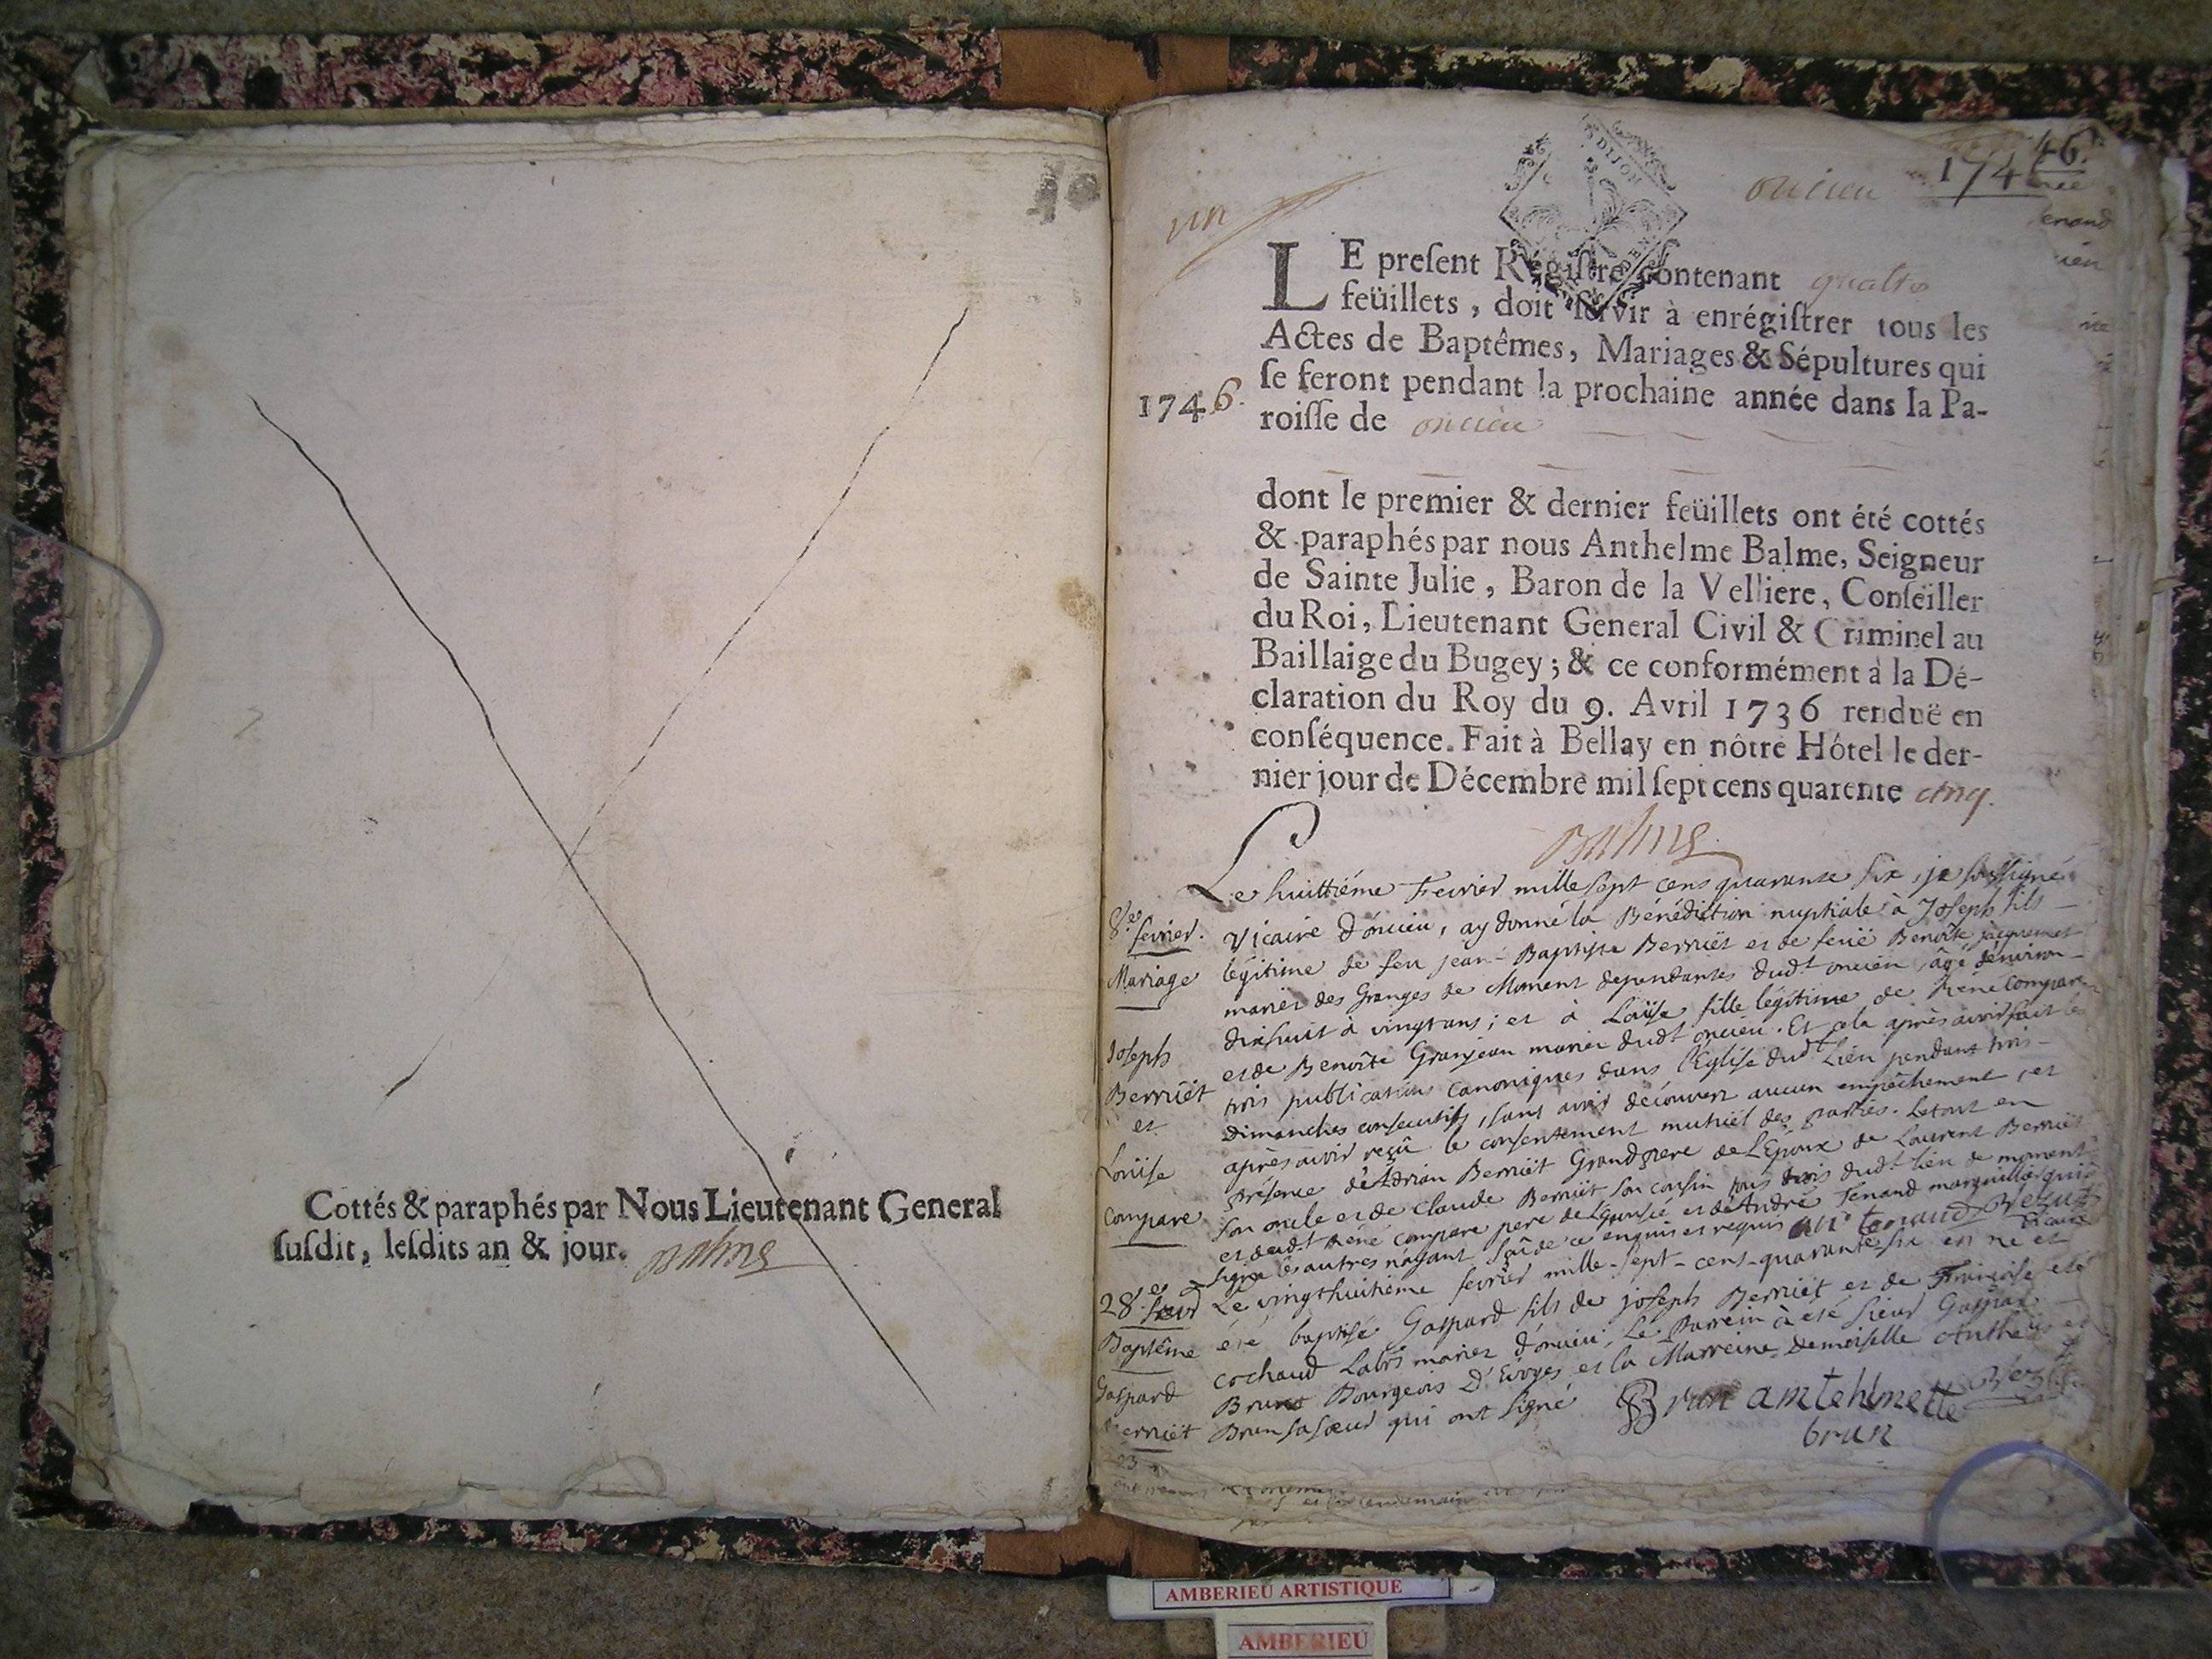 Cottés & paraphés par Nous Lieutenant General
ſuſdit, leſdits an & jour. Balme
un
DIJON
oncieu
1746.
LE preſent Régiſtre contenant quatre
feüillets, doit ſervir à enrégiſtrer tous les
Actes de Baptêmes, Mariages & Sépultures qui
ſe feront pendant la prochaine année dans la Pa-
1746.
roiſſe de oncieu
dont le premier & dernier feüillets ont été cottés
& paraphés par nous Anthelme Balme, Seigneur
de Sainte Julie, Baron de la Velliere, Conſeiller
du Roi, Lieutenant General Civil & Criminel au
Baillaige du Bugey; & ce conformément à la Dé-
claration du Roy du 9. Avril 1736 renduë en
conſéquence. Fait à Bellay en nôtre Hôtel le der-
nier jour de Décembre mil ſept cens quarente cinq.
Balme
8.e fevrier.
Mariage
Joseph
Berruët
et
Loüise
Compare
Le huittiéme Fevrier mille sept cens quarante six, je soussigné
Vicaire d'oncieu, ay donné la Bénédiction nuptiale à Joseph fils
légitime de feu jean-Baptiste Berruët et de feuë Benoîte jacquemet
mariés des Granges de Moment dependantes dudt oncieu, agé d'environ
dixhuit à vingt ans; et à Loüise fille légitime de René Compare
et de Benoîte Granjean mariés dudt oncieu. Et cela après avoir fait les
trois publications canoniques dans l'Eglise dudt Lieu pendant trois
Dimanches consecutifs, sans avoir découvert aucun empêchement, et
après avoir reçû le consentement mutuël des parties. Le tout en
présence d'Adrian Berruët Grand pere de L'Epoux de Laurent Berruët
son oncle et de Claude Berruët son cousin tous trois dudt lieu de moment
et dudt René compare pere de L'Epousée et d'André Tenand marguillier qui a
signé les autres n'ayant sçû de ce enquis et requis an. tenand
Vicaire
28.e fevr
Baptême
Gaspard
Berruët
Le vingthuitiéme fevrier mille-sept-cens-quarante six est né et
été baptisé Gaspard fils de joseph Berruët et de Françoise
cochaud Labri mariés d'oncieu; Le Parrein à été sieur Gaspar
Brun Bourgeois D'Evoges et la Marreine Demoiselle
Brun sa sœur qui ont signé Brun amtehlmette
brun
AMBERIEU ARTISTIQUE
AMBERIEU